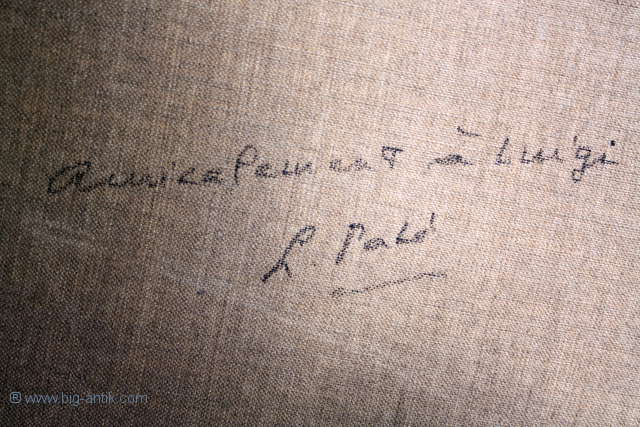 amicalement à Luigi
L. Palé
® www.big-antik.com